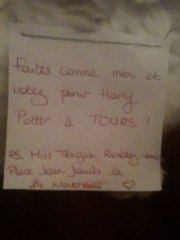 Faites comme moi et
votez pour Harry
Potter à TOURS !
PS. Miss Teigne, Rendez-vous
Place Jean Jaurès le
24 Novembre ♡